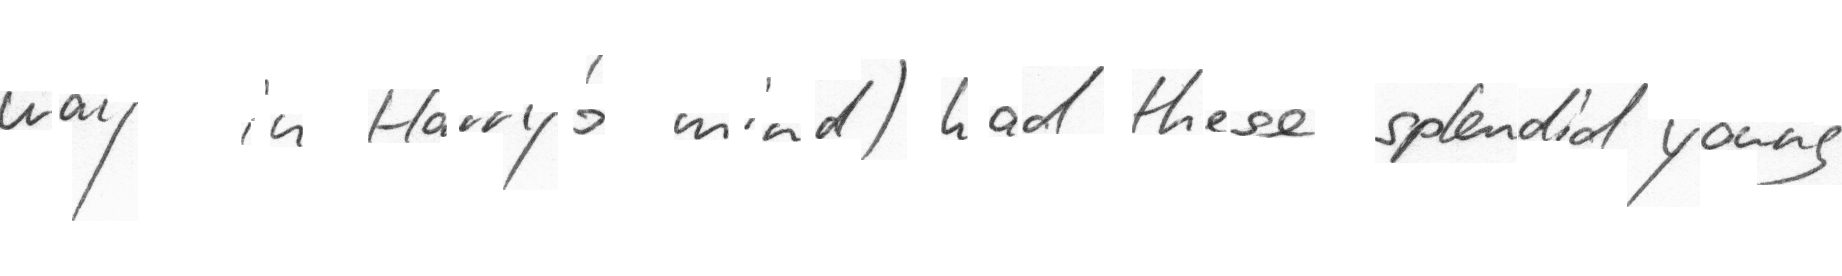 way in Harry's mind) had these splendid young